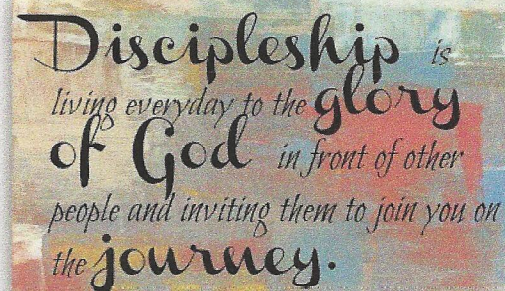 Discipleship is
living everyday to the glory
of God in front of other
people and inviting them to join you on
the journey.